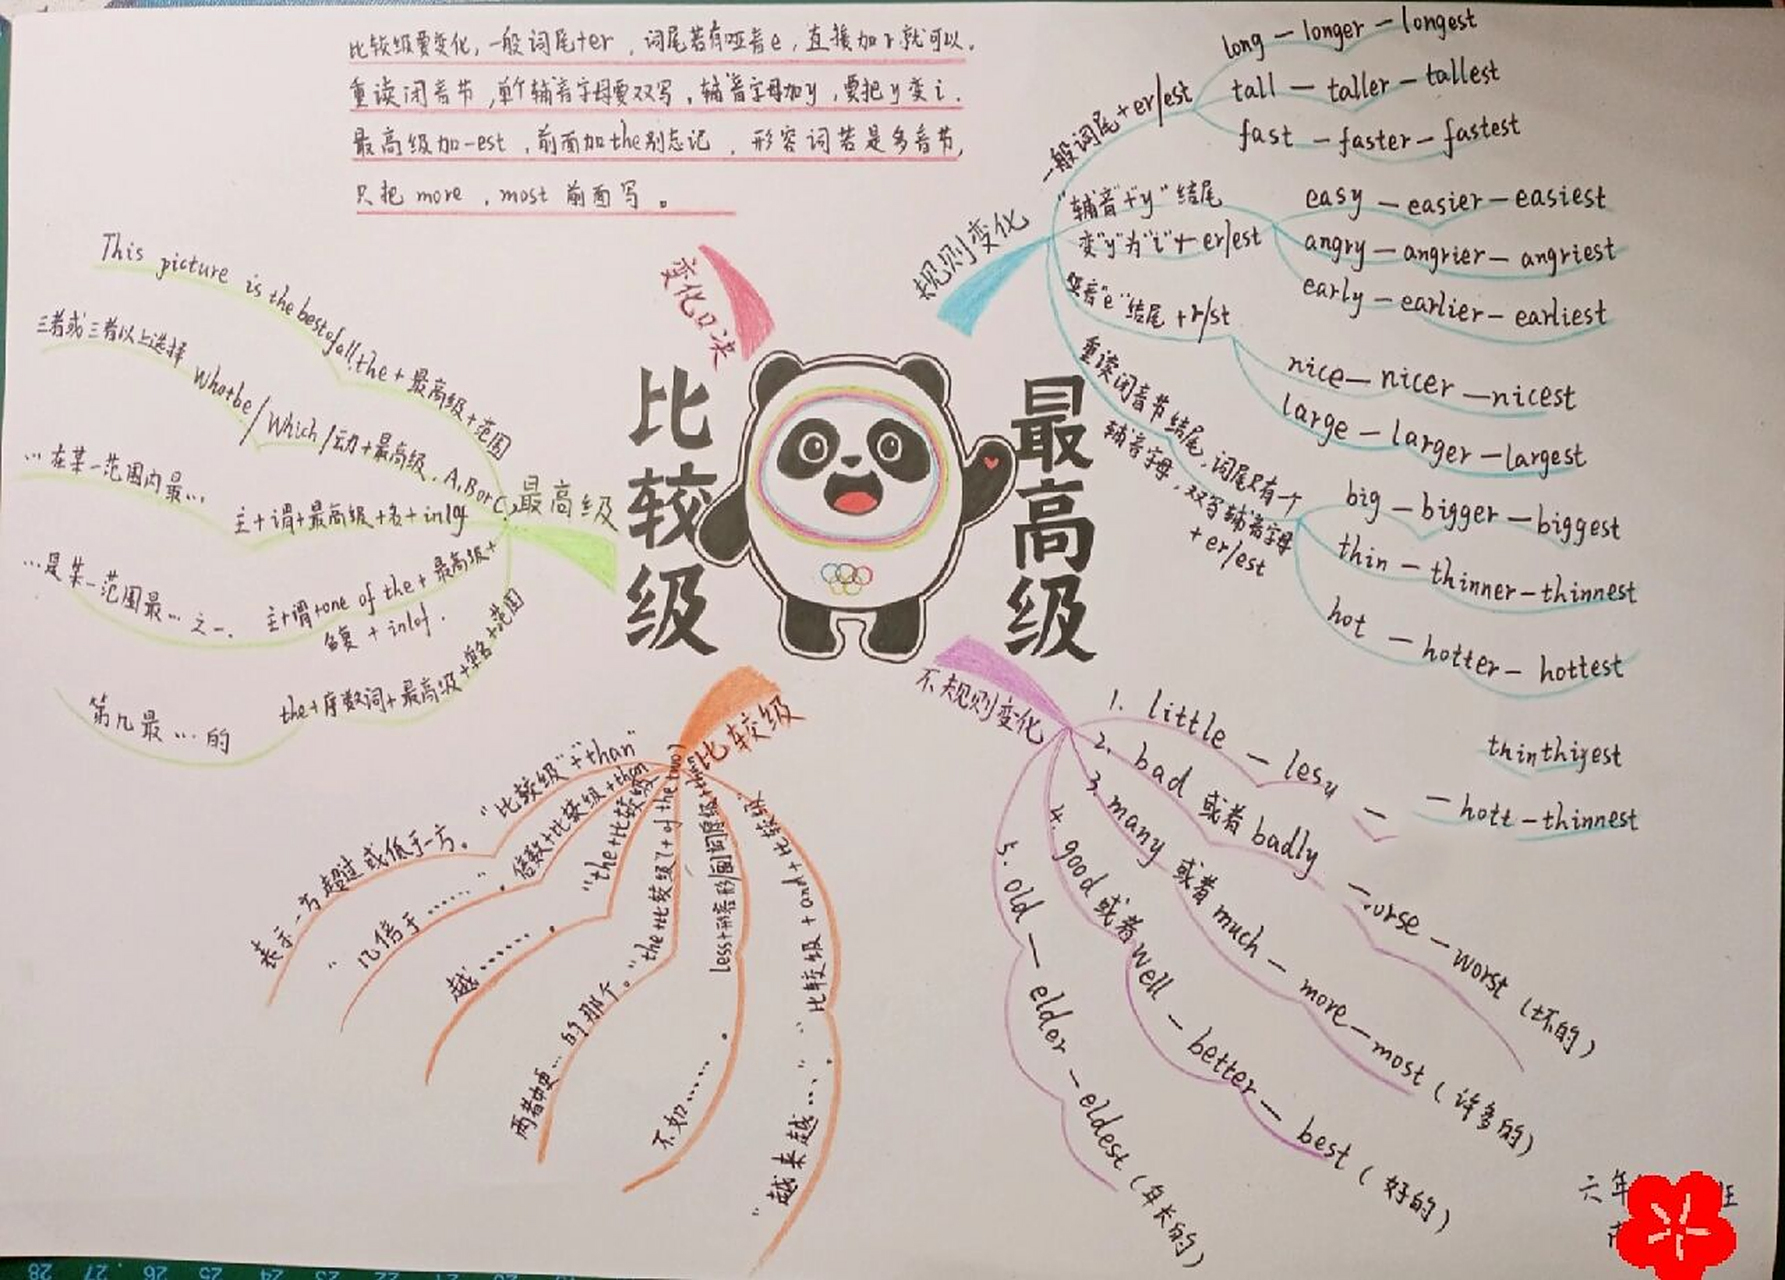 比较级要变化,一般词尾+er,词尾若有哑音e,直接加r就可以.
重读闭音节,单个辅音字母要双写,辅音字母加y,要把y变i.
最高级加-est,前面加the别忘记,形容词若是多音节,
只把more,most前面写。
变化口决
比较级
最高级
规则变化
一般词尾+er/est
long — longer — longest
tall — taller — tallest
fast — faster — fastest
"辅音+y"结尾
变"y"为"i"+er/est
easy — easier — easiest
angry — angrier — angriest
early — earlier — earliest
"e"结尾+r/st
nice — nicer — nicest
large — larger — largest
重读闭音节结尾,词尾只有一个
辅音字母,双写辅音字母
+er/est
big — bigger — biggest
thin — thinner — thinnest
hot — hotter — hottest
不规则变化
1. little — les
2. bad 或者 badly — orse — worst (坏的)
3. many 或者 much — more — most (许多的)
4. good 或者 well — better — best (好的)
5. old — elder — eldest (年长的)
— hott — thinnest
比较级
"比较级"+"than"
表示一方超过或低于一方。
倍数+比较级+than
"几倍于……".
"the+比较级
越…….
the+比较级(+of the two)
两者中更…的那个."
less+形容
不如…….
比较级+and+比较级
"越来越…".
最高级
This picture is the best of all.the+最高级+范围
三者或三者以上选择 What be/Which/动+最高级,A,B or C
…在某一范围内最… 主+谓+最高级+名+in/of
…是某一范围最…之一. 主+谓+one of the+最高级+
名复+in/of.
第几最…的 the+序数词+最高级+单名+范围
六年